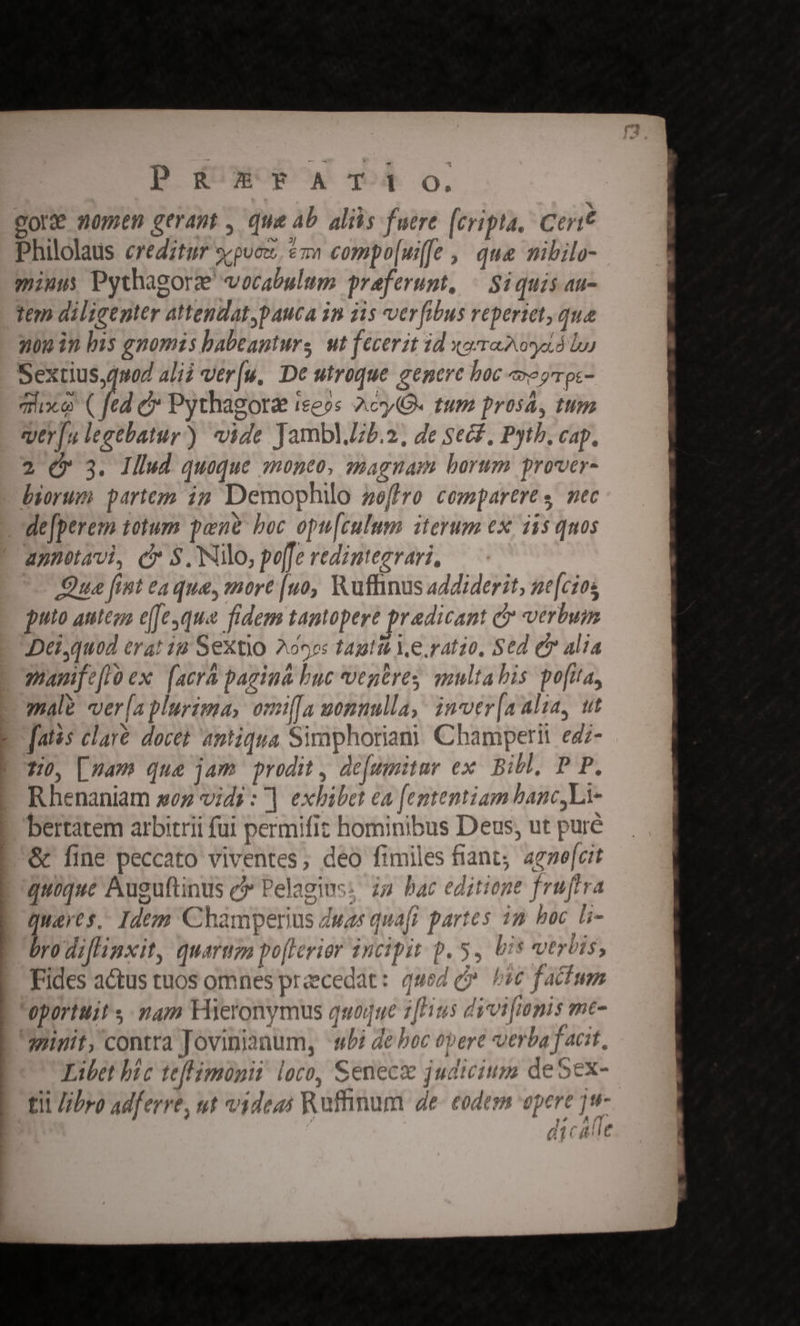 13.
PRÆFATIO.
goræ nomen gerant, quæ ab aliis fuere ſcripta. Certe
Philolaus creditur χρυσᾶ ἔπη compoſuiſſe, quæ nihilo-
minus Pythagoræ vocabulum præferunt. Si quis au-
tem diligenter attendat, pauca in iis verſibus reperiet, quæ
non in his gnomis habeantur; ut fecerit id
Sextius, quod alii verſu. De utroque genere hoc προτρε-
πτικῷ (ſed & Pythagoræ ἱερὸς λόγος tum prosâ, tum
verſu legebatur) vide Jambl. lib. 2. de Sect. Pyth. cap.
2 & 3. Illud quoque moneo, magnam horum prover-
biorum partem in Demophilo noſtro comparere; nec
deſperem totum pœnè hoc opuſculum iterum ex iis quos
annotavi, & S. Nilo, poſſe redintegrari.
Quæ ſint ea quæ, more ſuo, Ruffinus addiderit, neſcio;
puto autem eſſe, quæ fidem tantopere prædicant & verbum
Dei, quod erat in Sextio λόγος tantũ i.e. ratio. Sed & alia
manifeſtò ex ſacrâ paginâ huc venêre; multa his poſita,
malè verſa plurima, omiſſa nonnulla, inverſa alia, ut
ſatis clarè docet antiqua Simphoriani Champerii edi-
tio, [nam quæ jam prodit, deſumitur ex Bibl. P P.
Rhenaniam non vidi: ] exhibet ea ſententiam hanc, Li-
bertatem arbitrii ſui permiſit hominibus Deus, ut purè
& ſine peccato viventes, deo ſimiles fiant; agnoſcit
quoque Auguſtinus & Pelagius; in hac editione fruſtra
quæres. Idem Champerius duas quaſi partes in hoc li-
bro diſtinxit, quarum poſterior incipit p. 5, his verbis,
Fides actus tuos omnes præcedat: quod & hîc factum
oportuit; nam Hieronymus quoque iſtius diviſionis me-
minit, contra Jovinianum, ubi de hoc opere verba facit.
Libet hîc teſtimonii loco, Senecæ judicium de Sex-
tii libro adferre, ut videas Ruffinum de eodem opere ju-
dicâſſe